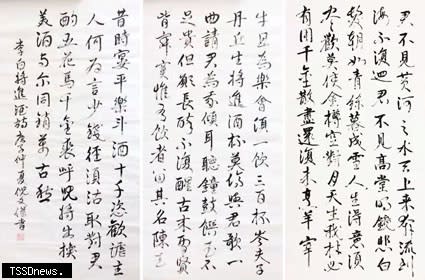 君不見黃河之水天上來奔流到
海不復迴君不見高堂明鏡悲白
髮朝如青絲暮成雪人生得意須
盡歡莫使金樽空對月天生我材必
有用千金散盡還復來烹羊宰
牛且為樂會須一飲三百杯岑夫子
丹丘生將進酒杯莫停與君歌一
曲請君為我傾耳聽鐘鼓饌玉不
足貴但願長醉不復醒古來聖賢
皆寂寞惟有飲者留其名陳王
昔時宴平樂斗酒十千恣歡謔主
人何為言少錢徑須沽取對君
酌五花馬千金裘呼兒將出換
美酒与尔同銷萬古愁
李白將進酒詩庚子仲夏倪文傑書
TSSDnews.